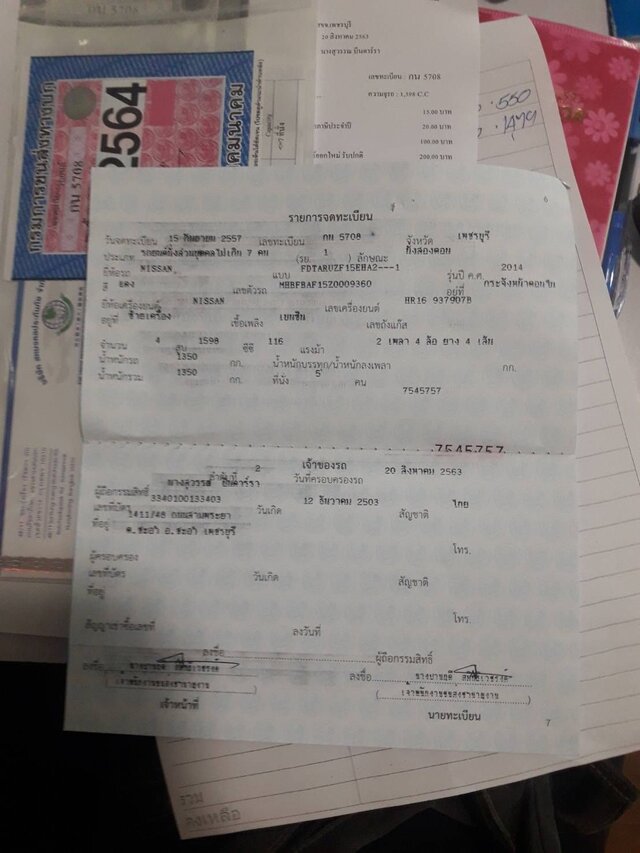 กน 5708
กรมการขนส่งทางบก
2564
กน 5708
คมนาคม
20 สิงหาคม 2563
เลขทะเบียน : กน 5708
ความจุรถ : 1,598 C.C
15.00 บาท
20.00 บาท
100.00 บาท
200.00 บาท
550
1479
6
รายการจดทะเบียน
วันจดทะเบียน 15 กันยายน 2557 เลขทะเบียน กน 5708 จังหวัด เพชรบุรี
ประเภท รถยนต์นั่งส่วนบุคคลไม่เกิน 7 คน (รย. 1 ) ลักษณะ นั่งสองตอน
ยี่ห้อรถ NISSAN แบบ FDTARUZF15EHA2---1 รุ่นปี ค.ศ. 2014
สี แดง เลขตัวรถ MHBFBAF15Z0009360 อยู่ที่ กระจังหน้าตอนใน
ยี่ห้อเครื่องยนต์ NISSAN เลขเครื่องยนต์ HR16 937907B
อยู่ที่ ซ้ายเครื่อง เชื้อเพลิง เบนซิน เลขถังแก๊ส
จำนวน 4 สูบ 1598 ซีซี 116 แรงม้า 2 เพลา 4 ล้อ ยาง 4 เส้น
น้ำหนักรถ 1350 กก. น้ำหนักบรรทุก/น้ำหนักลงเพลา กก.
น้ำหนักรวม 1350 กก. ที่นั่ง 5 คน
7545757
7545757
เจ้าของรถ
ลำดับที่ 2 วันที่ครอบครองรถ 20 สิงหาคม 2563
ผู้ถือกรรมสิทธิ์
เลขที่บัตร 3340100133403 วันเกิด 12 ธันวาคม 2503 สัญชาติ ไทย
ที่อยู่ 1411/48 ถนนสามพระยา
ต.ชะอำ อ.ชะอำ เพชรบุรี
โทร.
ผู้ครอบครอง
เลขที่บัตร วันเกิด สัญชาติ
ที่อยู่
โทร.
สัญญาเช่าซื้อเลขที่ ลงวันที่
ลงชื่อ ผู้ถือกรรมสิทธิ์
ลงชื่อ ลงชื่อ
เจ้าหน้าที่ นายทะเบียน
7
รวม
คงเหลือ